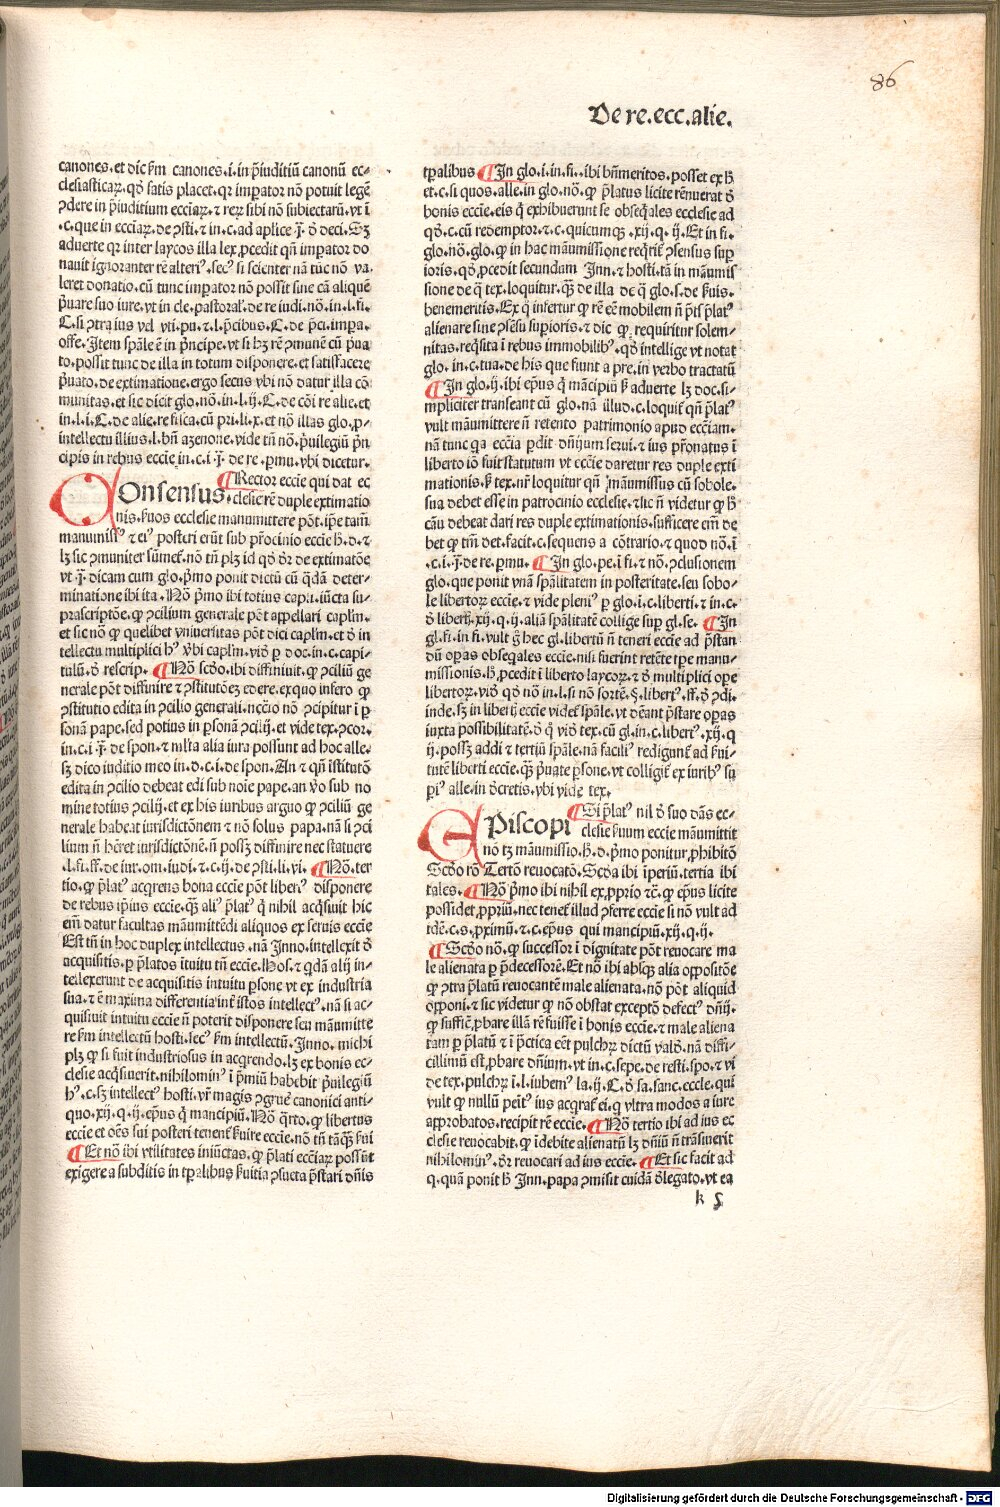 86
De re.ecc.alie.
canones.et dic ẜm canones.i.in p̄iuditiū canonū ec⸗
clesiasticaꝝ.qđ satis placet.qꝛ impator nō potuit legē
ꝯdere in p̄iuditium ecciaꝝ.⁊ reꝝ sibi nō subiectarū.vt ī
.c.que in ecciaꝝ.de ꝯsti.⁊ in.c.ad aplice.j̄.đ deci.Sꝫ
aduerte qꝛ inter laycos illa lex ꝓcedit qn̄ impator do
nauit ignoranter rē alteriꝰ.secꝰ si scienter nā tūc nō va
leret donatio.cū tunc impator nō possit sine cā aliquē
p̄uare suo iure.vt in cle.pastoral'.de re iudi.nō.in.l.fi.
C.si ꝯtra ius vel vti.pu.⁊.l.p̄cibus.C.de p̄ci.impa.
offe.Item sp̄ale ē in p̄ncipe.vt si hꝫ rē ꝯmunē cū p̄ua
to.possit tunc de illa in totum disponere.et satisfacere
p̄uato.de extimatione.ergo secus vbi nō datur illa cō
munitas.et sic dicit glo.nō.in.l.ij.C.de cōi re alie.et
in.l.i.C.de alie.re fisca.cū pri.li.x.et nō illas glo.ꝓ⸗
intellectu illius.l.bn̄ azenone.vide tn̄ nō.p̄uilegiū p̄n
cipis in rebus eccie in.c.i.j̄.de re.pmu.vbi dicetur.
¶Rector eccie qui dat ec
Consensus.clesie rē duple extimatio
nis.ẜuos ecclesie manumittere pōt.ip̄e tam̄
manumissꝰ ⁊ eiꝰ posteri erūt sub p̄rocinio eccie h̄.d.⁊
lꝫ sic ꝯmuniter sūmet᷑.nō tn̄ plꝫ id qđ đr de extimatōe
vt.j̄.dicam cum glo.p̄mo ponit dictū cū q̄dā deter⸗
minatione ibi ita.Nō p̄mo ibi totius capti.iūcta su⸗
prascriptōe.ꝙ ꝯcilium generale pōt appellari caplm̄.
et sic nō ꝙ quelibet vniuersitas pōt dici caplm̄.et đ in
tellectu multiplici hꝰ ꝟbi caplm̄.vid̄ p doc.in.c.capi⸗
tulū.đ rescrip.¶Nō scđo.ibi diffiniuit.ꝙ ꝯciliū ge
nerale pōt diffinire ⁊ ꝯstitutōeꝫ edere.ex quo infero ꝙ
ꝯstitutio edita in ꝯcilio generali.nečcio nō ꝯcipitur ī p
sonā pape.sed potius in psonā ꝯcilij.et vide tex.ꝯcor.
in.c.i.j̄.de spon.⁊ mlt̄a alia iura possunt ad hoc alle.
sꝫ dico iuditio meo in.d.c.i.de spon.An ⁊ qn̄ īstitutō
edita in ꝯcilio debeat edi sub noie pape.an ꝟo sub no
mine totius ꝯcilij.et ex his iuribus arguo ꝙ ꝯciliū ge
nerale habeat iurisdictōnem ⁊ nō solus papa.nā si ꝯci
lium n̄ hēret iurisdictōnē.n̄ possꝫ diffinire nec statuere
.l.fi.ff.de iur.om.iudi.⁊.c.ij.de ꝯsti.li.vi.¶Nō.ter
tio.ꝙ p̄latꝰ acqrens bona eccie pōt liberꝰ disponere
de rebus ip̄ius eccie.qꝫ aliꝰ p̄latꝰ q̄ nihil acq̄siuit hic
em̄ datur facultas māumittēdi aliquos ex seruis eccie
Est tn̄ in hoc duplex intellectus.nā Inno.intellexit đ
acquisitis.p p̄latos ītuitu tn̄ eccie.Hos.⁊ q̄dā alij in⸗
tellexerunt de acquisitis intuitu psone vt ex industria
sua.⁊ ē maxima differentia int᷑ istos intellecꝰ.nā si ac⸗
quisiuit intuitu eccie n̄ poterit disponere seu māumitte
re ẜm intellectū hosti.secꝰ ẜm intellectū.Inno.michi
plꝫ ꝙ si fuit industriosus in acqrendo.lꝫ ex bonis ec⸗
clesie acq̄siuerit.nihilominꝰ ī p̄miū habebit p̄uilegiū
hꝰ.c.sꝫ intellecꝰ hosti.vr̄ magis ꝯgruē canonici anti⸗
quo.xij.q.ij.ep̄us q̄ mancipiū.Nō q̄rto.ꝙ libertus
eccie et oēs sui posteri tenent᷑ ẜuire eccie.nō tn̄ tāq̄ꝫ ẜui
¶Et nō ibi vtilitates iniūctas.ꝙ p̄lati ecciaꝝ possūt
exigere a subditis in tp̄alibus ẜuitia ꝯsucta p̄stari dn̄is
tp̄alibus ¶In glo.i.in.fi.ibi bn̄meritos.posset ex h̄
et.c.si quos.alle.in glo.nō.ꝙ p̄latus licite rēnuerat đ
bonis eccie.eis q̄ exhibuerunt se obseq̄ales ecclesie ad
qđ.c.cū redemptor.⁊.c.quicumqꝫ.xij.q.ij.Et in fi.
glo.nō.glo.ꝙ in hac māumissione reqrit᷑ ꝯsensus sup
ioris.qđ ꝓcedit secundam Inn.⁊ hosti.tā in māumis
sione de q̄ tex.loquit᷑.qꝫ de illa de q̄ glo.s.de ẜuis.
benemeritis.Ex q̄ infertur ꝙ rē eē mobilem n̄ p̄t p̄latꝰ
alienare sine ꝯsēsu supioris.⁊ dic ꝙ requiritur solem⸗
nitas.reqsita ī rebus immobilibꝰ.qđ intellige vt notat
glo.in.c.tua.de his que fiunt a pre.in verbo tractatū
¶In glo.ij.ibi ep̄us q̄ mācipiū ẜ aduerte lꝫ doc.si⸗
mpliciter transeant cū glo.nā illud.c.loquit᷑ qn̄ p̄latꝰ
vult māumittere n̄ retento patrimonio apud ecciam.
nā tunc qꝛ eccia pdit dn̄ium serui.⁊ ius pr̄onatus ī
liberto iō fuit statutum vt eccie daretur res duple exti
mationis.ẜ tex.nr̄ loquitur qn̄ māumissus cū sobole.
sua debet esse in patrocinio ecclesie.⁊ huc n̄ videtur ꝙ h̄
cāu debeat dari res duple extimationis.sufficere em̄ de
bet ꝙ tm̄ det.facit.c.sequens a cōtrario.⁊ quod nō.ī
.c.i.j̄.de re.pmu.¶In glo.pe.ī fi.⁊ nō.ꝯclusionem
glo.que ponit vnā sp̄alitatem in posteritate.seu sobo⸗
le libertoꝝ eccie.⁊ vide pleniꝰ p glo.ī.c.liberti.⁊ in.c.
đ libertꝭ.xij.q.ij.aliā sp̄alitatē collige sup gl.se.¶In
gl.fi.in fi.vult q̄ hec gl.libertū n̄ teneri eccie ad p̄stan
dū opas obseq̄ales eccie.nisi fuerint retēte tp̄e manu⸗
missionis.h̄.ꝓcedit ī liberto laycoꝝ.⁊ đ multiplici ope
libertoꝝ.vid̄ qđ nō in.l.si nō sortē.§.libertꝰ.ff.đ ꝯdi.
inde.sꝫ in libertꝭ eccie videt᷑ sp̄ale.vt dēant p̄stare opas
iuxta possibilitatē.đ q̄ vid̄ tex.cū gl.in.c.libertꝰ.xij.q
ij.possꝫ addi ⁊ tertiū sp̄ale.nā faciliꝰ redigunt᷑ ad ẜui⸗
tutē liberti eccie.qꝫ p̄uate psone.vt colligit᷑ ex iuribꝰ su
pꝰ alle.in đcretis.vbi vide tex.
¶Si p̄latꝰ nil đ suo dās ec⸗
Episcopi clesie ẜuum eccie māumittit
nō tꝫ māumissio.h̄.d.p̄mo ponitur ꝓhibitō
Scđo rō Tertō reuocatō.Scđa ibi īperiū.tertia ibi
tales.¶Nō p̄mo ibi nihil ex ꝓprio ⁊c̄.ꝙ ep̄us licite
possidet ꝓpriū.nec tenet᷑ illud ꝯferre eccie si nō vult ad
idē.c.s.proximū.⁊.c.ep̄us qui mancipiū.xij.q.ij.
¶Scđo nō.ꝙ successor ī dignitate pōt reuocare ma
le alienata p p̄decessorē.Et nō ibi absqꝫ alia oppositōe
ꝙ ꝯtra p̄latū reuocantē male alienata.nō pōt aliquid
opponi.⁊ sic videtur ꝙ nō obstat exceptō defecꝰ dn̄ij.
ꝙ sufficꝭ ꝓbare illā rē fuisse ī bonis eccie.⁊ male aliena
tam p p̄latū ⁊ ī p̄ctica eēt pulchꝝ dictū valđ.nā diffi⸗
cillimū est ꝓbare dn̄ium.vt in.c.sepe.de resti.spo.⁊ vi
de tex.pulchꝝ ī.l.iubemꝰ la.ij.C.đ sa.sanc.eccle.qui
vult ꝙ nullū penitꝰ ius acqrat᷑ ei.q vltra modos a iure
approbatos.recipit rē eccie.¶Nō tertio ibi ad ius ec
clesie reuocabit.ꝙ īdebite alienatū lꝫ dn̄iū n̄ trāsiuerit
nihilominꝰ.đr reuocari ad ius eccie.¶Et sic facit ad
q.quā ponit h̄ Inn.papa ꝯmisit cuidā đlegato.vt ea
k 5
Digitalisierung gefördert durch die Deutsche Forschungsgemeinschaft - DFG